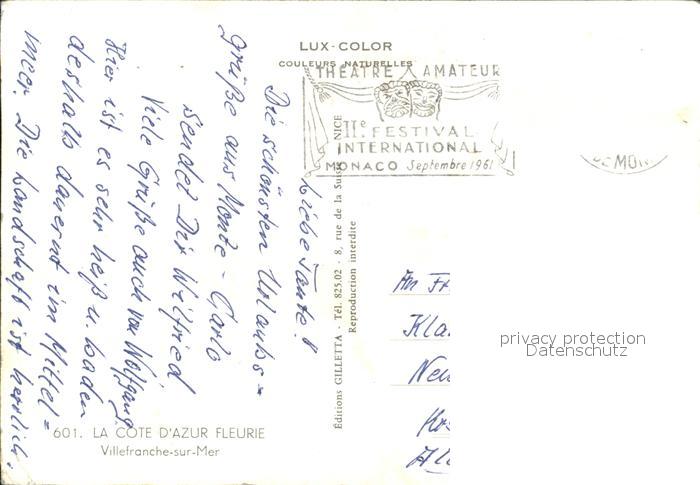 LUX-COLOR
COULEURS NATURELLES
THÉATRE AMATEUR
IIe FESTIVAL
INTERNATIONAL
MONACO Septembre 1961
DE MON
Liebe Tante!
Die schönsten Urlaubs=
grüße aus Monte-Carlo
sendet Dir Wilfried
Viele Grüße auch von Wolfgang.
Hier ist es sehr heiß u. baden
deshalb dauernd im Mittel=
meer. Die Landschaft ist herrlich.
Éditions GILLETTA - Tél. 825.02 - 8, rue de la Suisse NICE
Reproduction interdite
An Fr
Kla
Neu
Kr
privacy protection
Datenschutz
601. LA COTE D'AZUR FLEURIE
Villefranche-sur-Mer